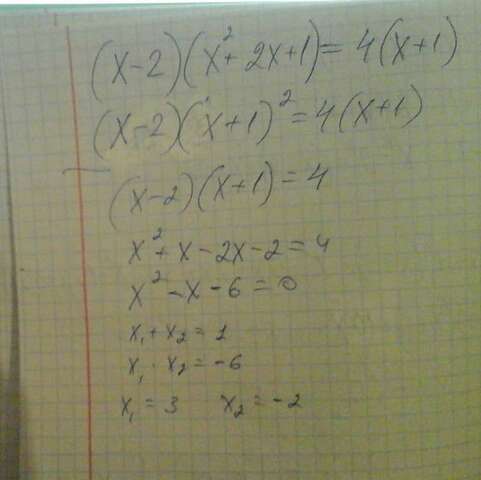 (x-2)(x²+2x+1)=4(x+1)
(x-2)(x+1)²=4(x+1)
(x-2)(x+1)=4
x²+x-2x-2=4
x²-x-6=0
x₁+x₂=1
x₁·x₂=-6
x₁=3 x₂=-2